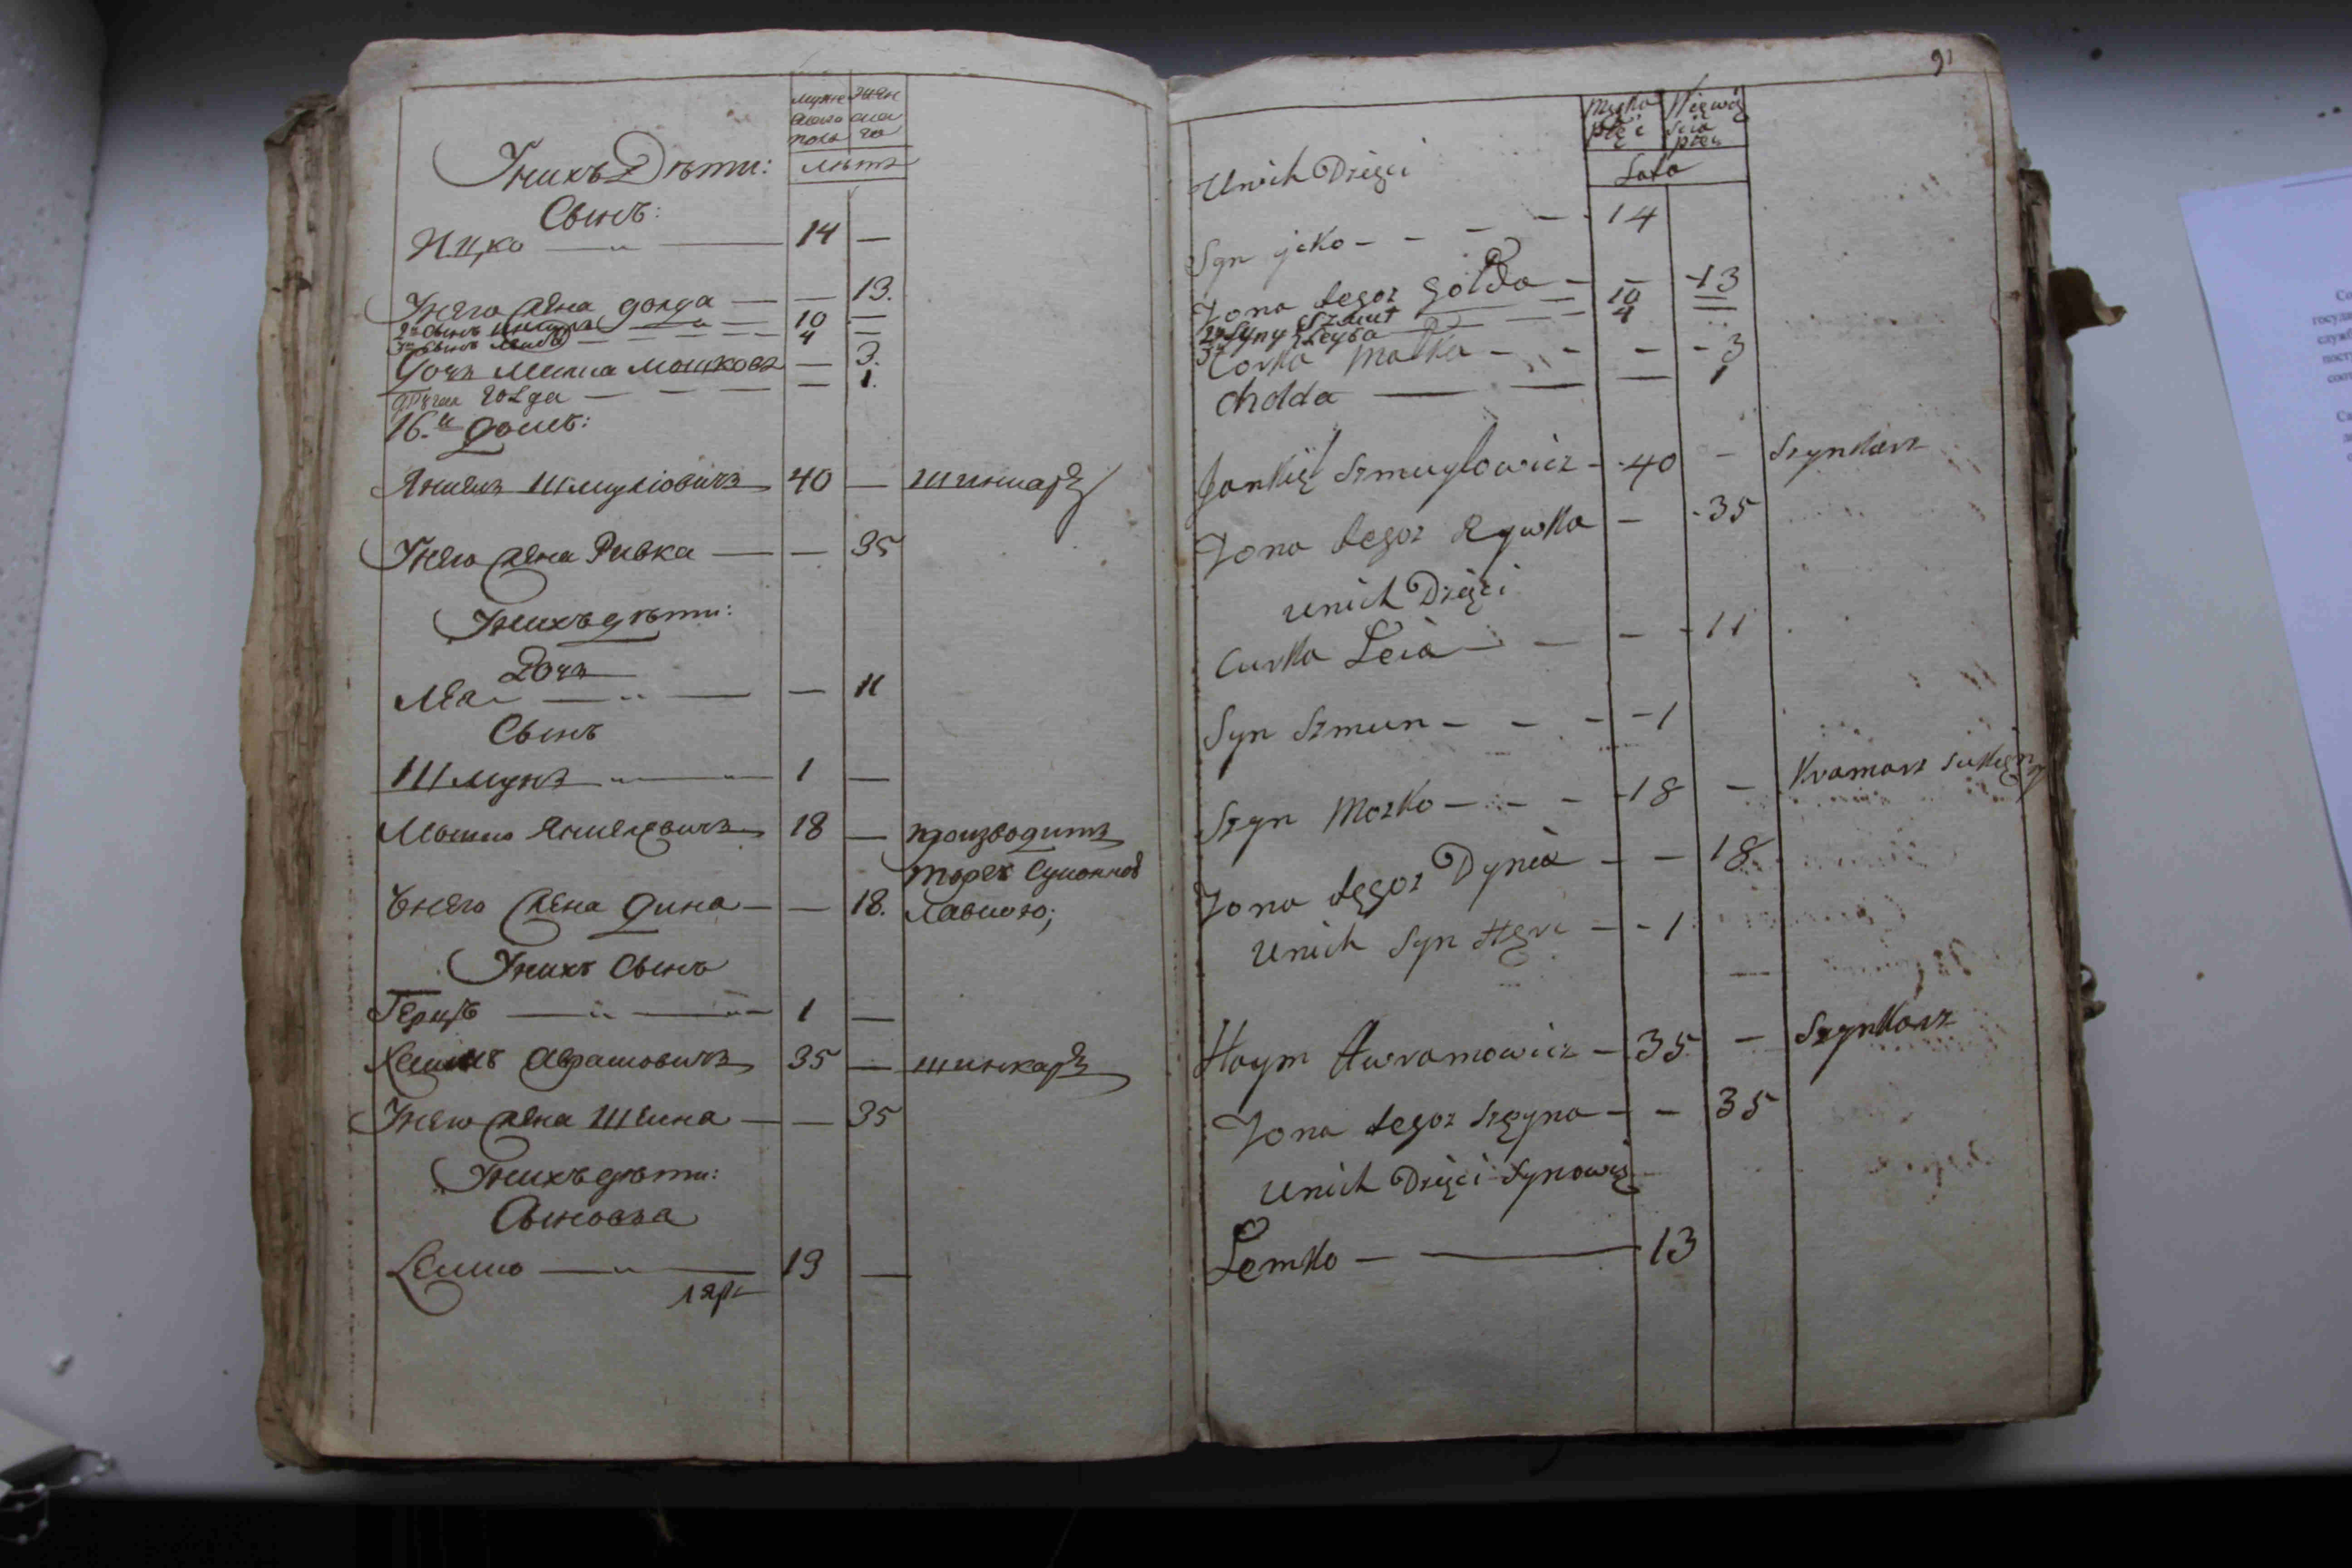 мужескаго пола
женскаго
лѣтъ
У нихъ Дѣти:
Сынъ:
Ицко 14 —
У него жена голда — — 13.
10 —
4 —
Дочъ Малка Мошкова — 3.
голда — 1.
16.й домъ:
Янкель Шмулiовичъ 40 — шинкаръ
У него жена Ривка — — 35
У нихъ дѣти:
Дочъ
Леа — 11
Сынъ
Шмунъ 1 —
Мошко Янкелевичъ 18 — производитъ
торгъ Суконной
Лавкою;
У него жена Дина — — 18.
У нихъ Сынъ
Герцъ 1 —
Хаимъ Аврамовичъ 35 — шинкаръ
У него жена Шеина — — 35
У нихъ дѣти:
Сыновья
Лемко 13 —
91
Męska płci
Niewieścia płci
Lata
Unich Dzięci
Syn jcko — — — — 14
Zona tegoz Golda — — 13
2. Syny Szmut — 10 —
3. Leyba — 4
Corka Malka — — — 3
Cholda — — — 1
Jankięl Szmuylowicz — 40 — Szynkarz
Zona tegoz Rywka — 35
unich Dzięci
Curka Leia — — — 11
Syn Szmun — — — 1
Szyn Moszko — — — 18 — Kramarz sukięny
Zona tęgoz Dynia — — 18
Unich Syn Hęrc — 1
Haym Awramowicz — 35 — Szynkarz
Zona tegoz Szęyna — — 35
Unich Dzięci Synowię
Lemko — 13